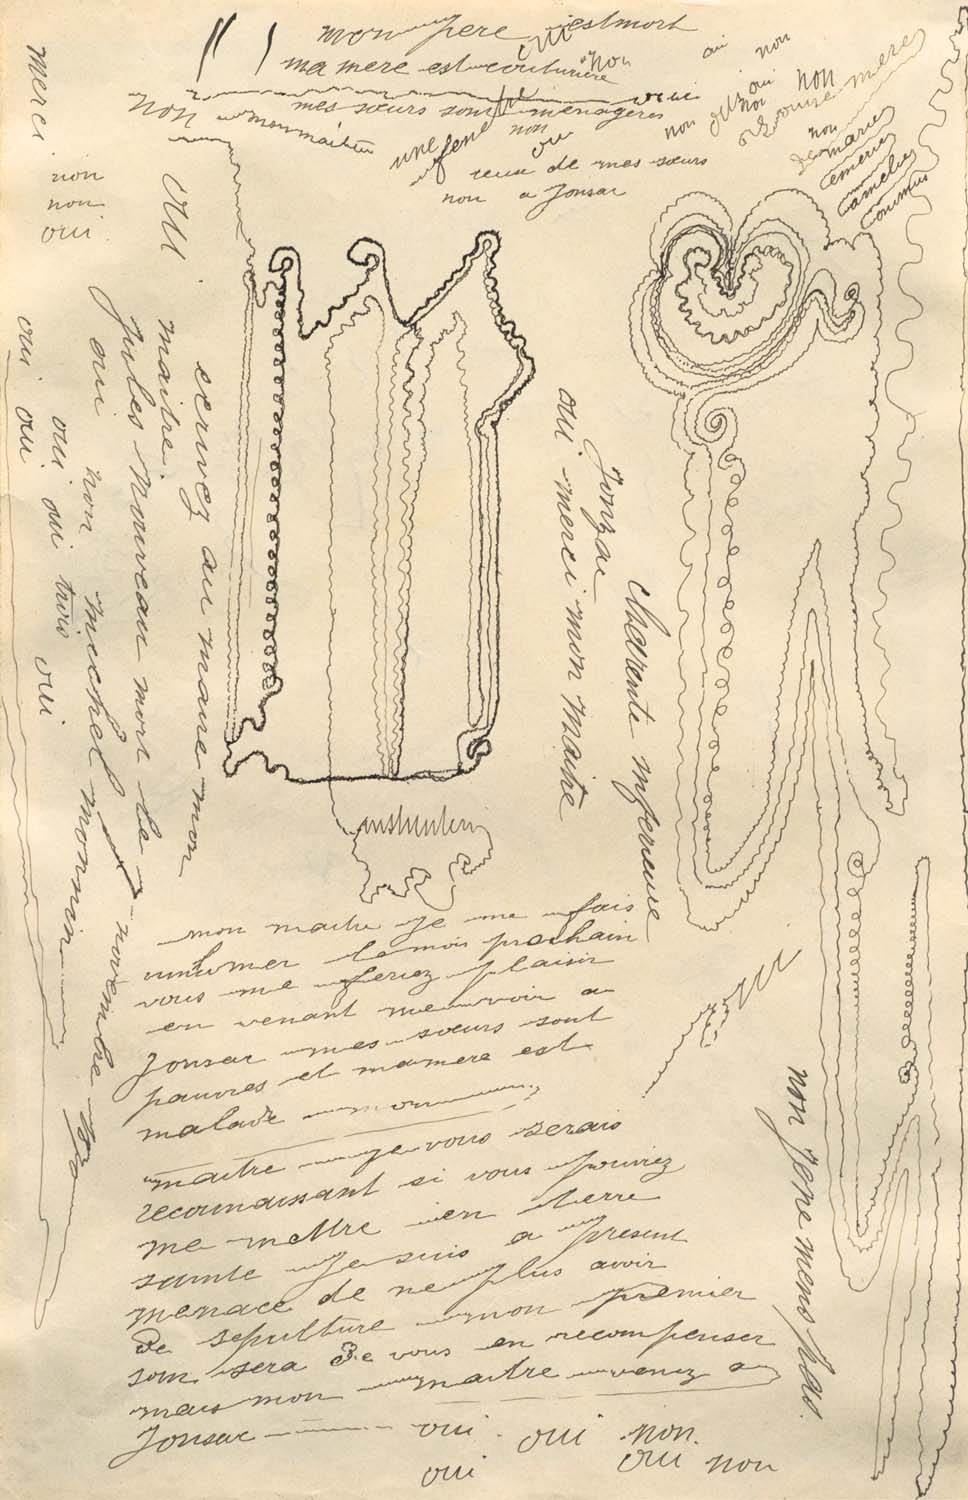 mon pere est mort
oui
ma mere est couturière
non
mes sœurs sont menagères
oui
non mon maitre
une femme
non
oui
ceux de mes sœurs
non a Jonsac
oui
non
oui
non
non
oui
non
non
Louise mere
non
de marie
emerie
amelie
merci
non
non
oui
oui
ecrivez au maire mon
maitre.
Jules Nouveau mort le 7 novembre
oui non michel monnin
oui oui oui trois oui
oui oui
oui merci mon maitre
Jonzac
charente inferieure
mon maitre je me fais
inhumer le mois prochain
vous me feriez plaisir
en venant me voir a
Jonsac mes sœurs sont
pauvres et ma mere est
malade mon
maitre je vous serais
reconnaissant si vous pouviez
me mettre en terre
sainte je suis a present
menace de ne plus avoir
de sepulture mon premier
soin sera de vous en recompenser
mais mon maitre venez a
Jonsac oui oui non.
oui oui non
non je ne mens pas.